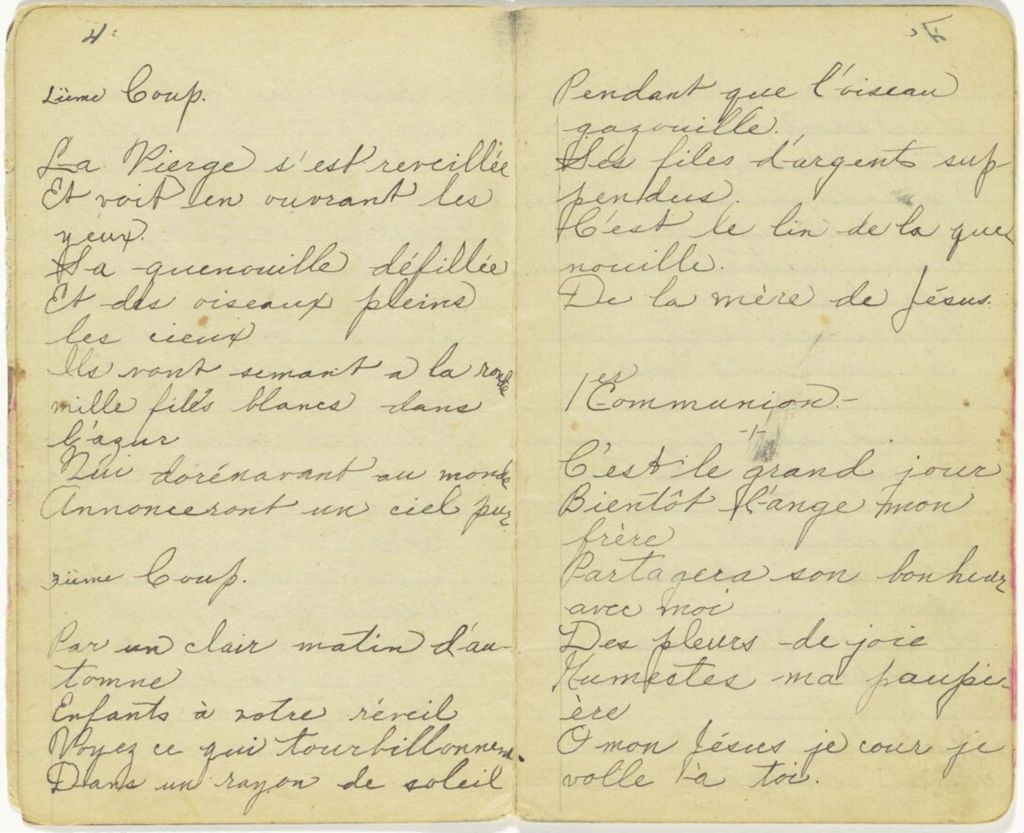 4
2ième Coup.
La Vierge s'est reveillée
Et voit en ouvrant les
yeux.
Sa quenouille défillée
Et des oiseaux pleins
les cieux
Ils vont semant a la ronde
mille filés blancs dans
l'azur
Qui dorénavant au monde
Annonceront un ciel pur
3ième Coup.
Par un clair matin d'au-
tomne
Enfants à votre réveil
Voyez ce qui tourbillonnent
Dans un rayon de soleil
Pendant que l'oiseau
gazouille.
Ses files d'argents sus
pendus.
C'est le lin de la que
nouille.
De la mère de Jésus.
1er Communion.-
-1-
C'est le grand jour
Bientôt l'ange mon
frère
Partagera son bonheur
avec moi
Des pleurs de joie
Humestes ma paupi-
ère
O mon Jésus je cour je
volle à toi.